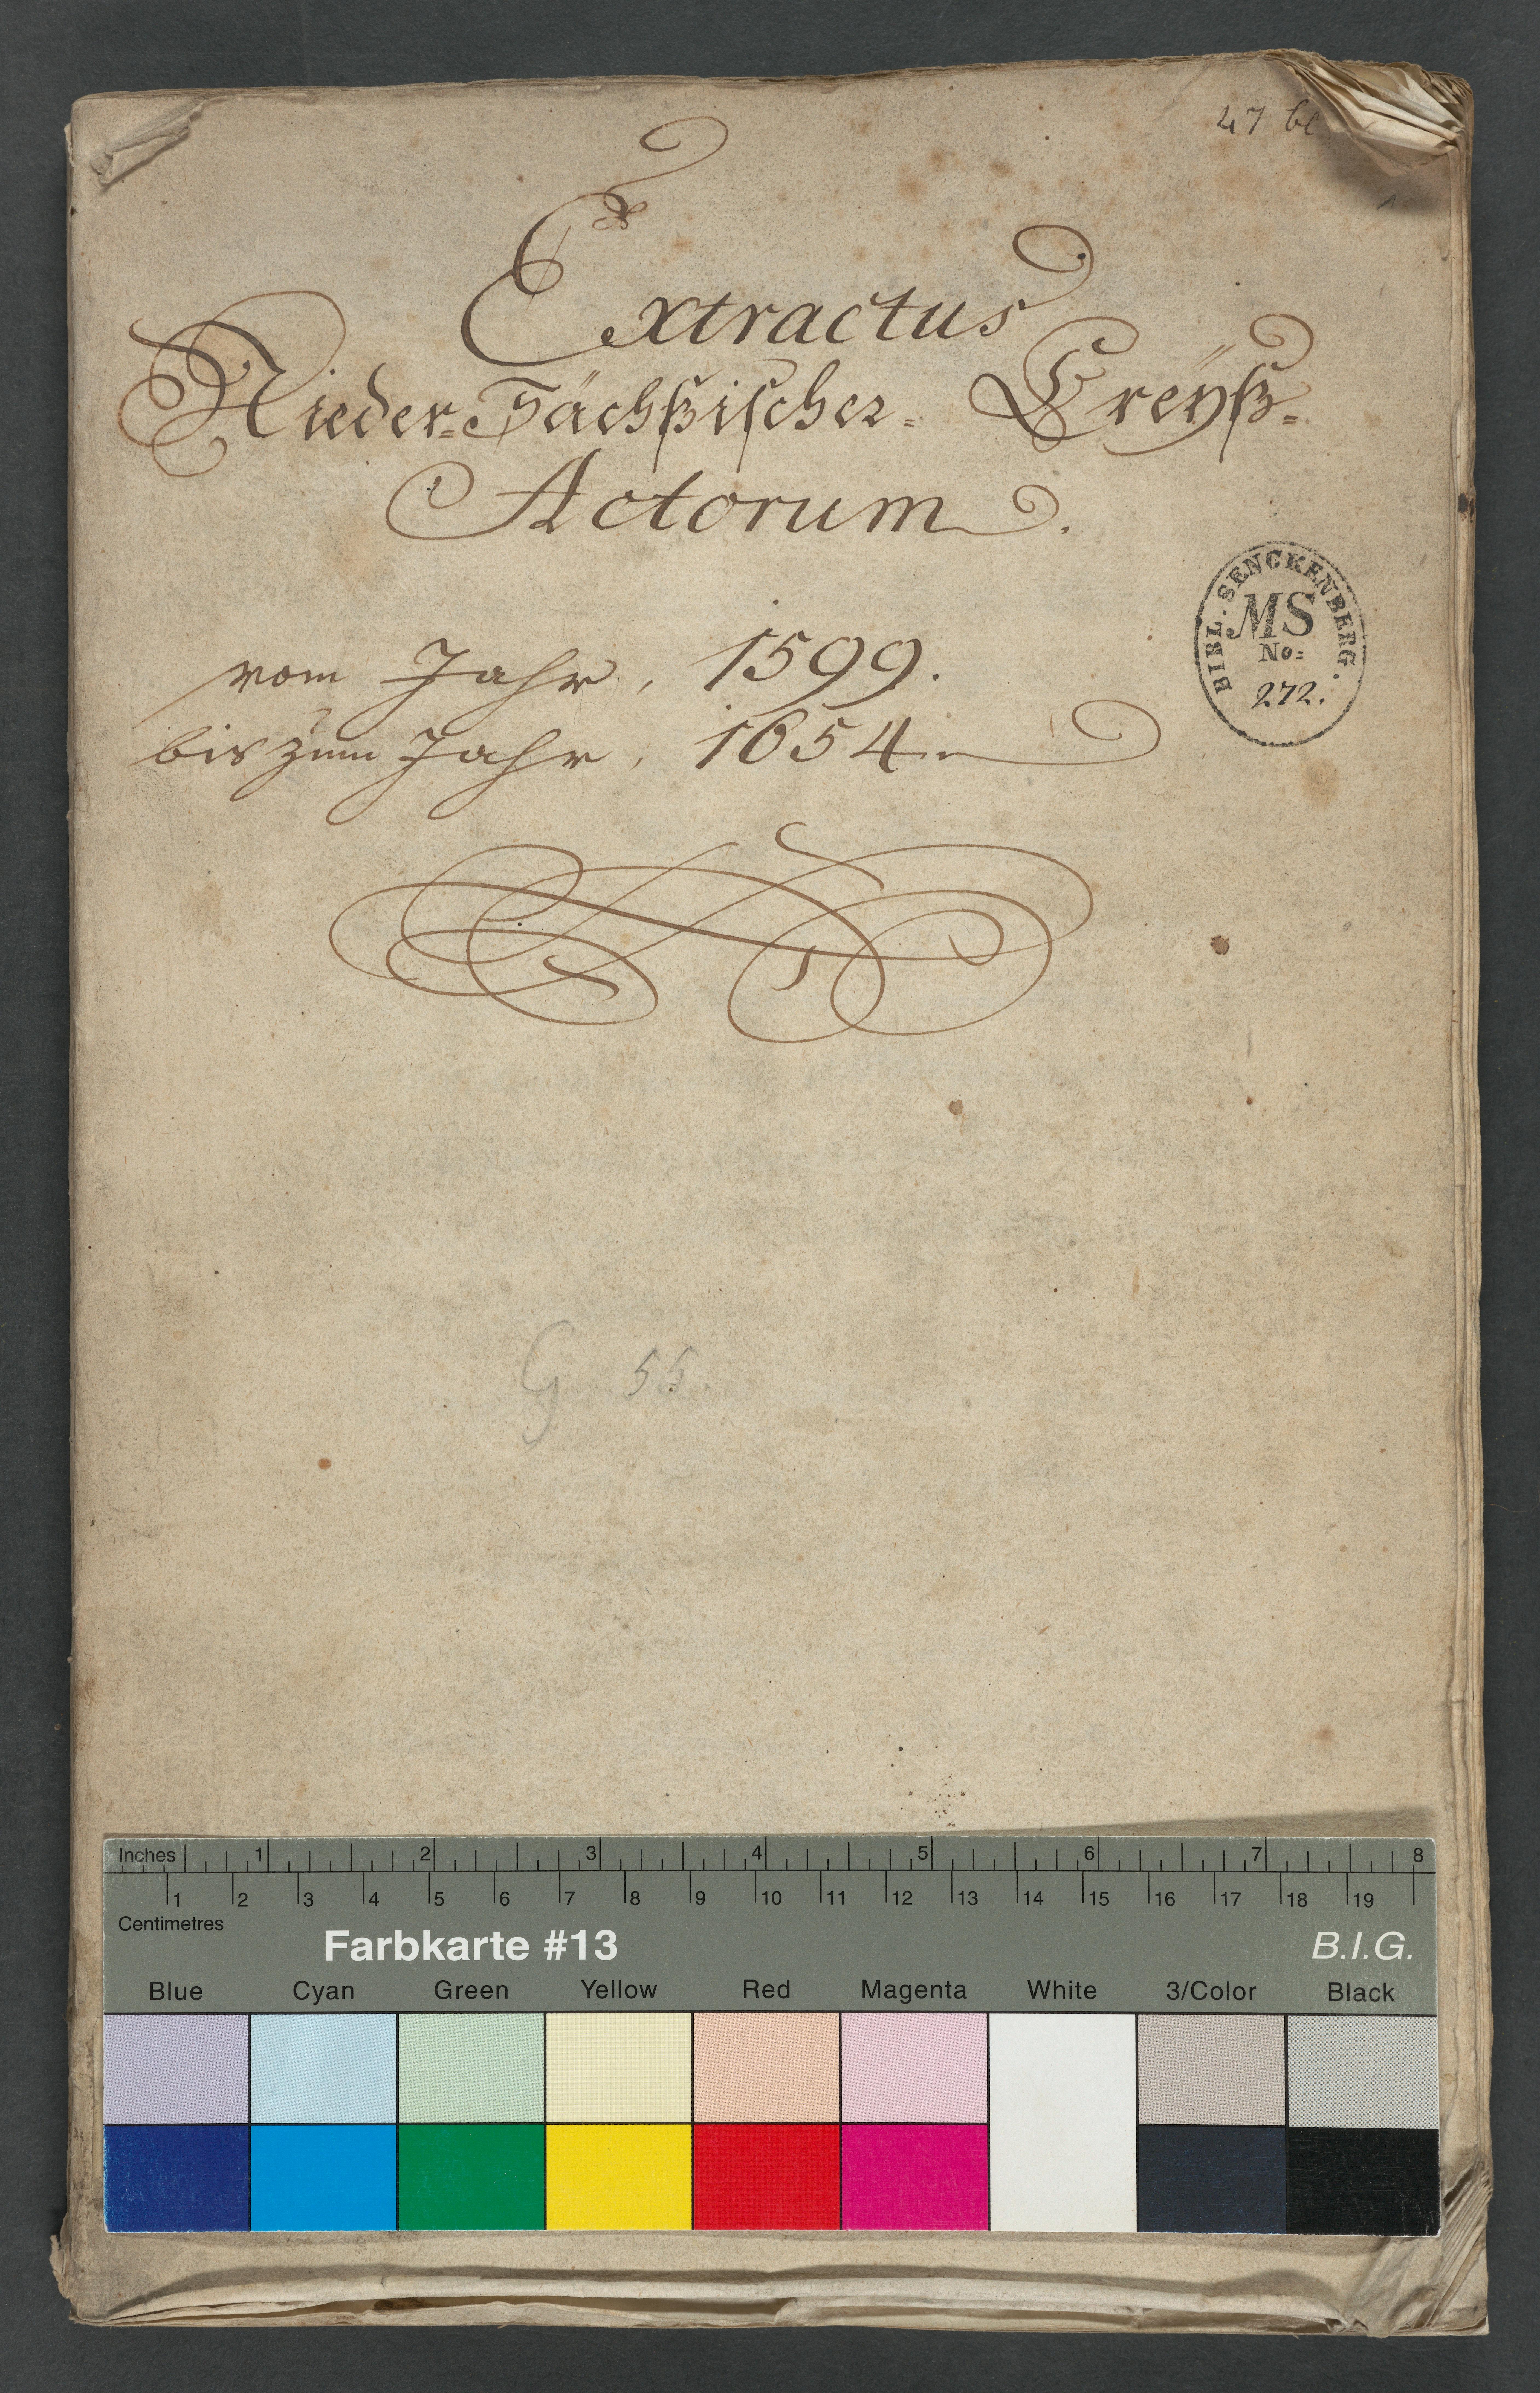 47 bl
Extractus
Nieder-Sächßischer-Creÿß-
Actorum.
vom Jahr, 1599.
bis zum Jahr, 1654.
BIBL. SENCKENBERG.
MS
No:
272.
G 55.
Inches 1 2 3 4 5 6 7 8
1 2 3 4 5 6 7 8 9 10 11 12 13 14 15 16 17 18 19
Centimetres
Farbkarte #13 B.I.G.
Blue Cyan Green Yellow Red Magenta White 3/Color Black